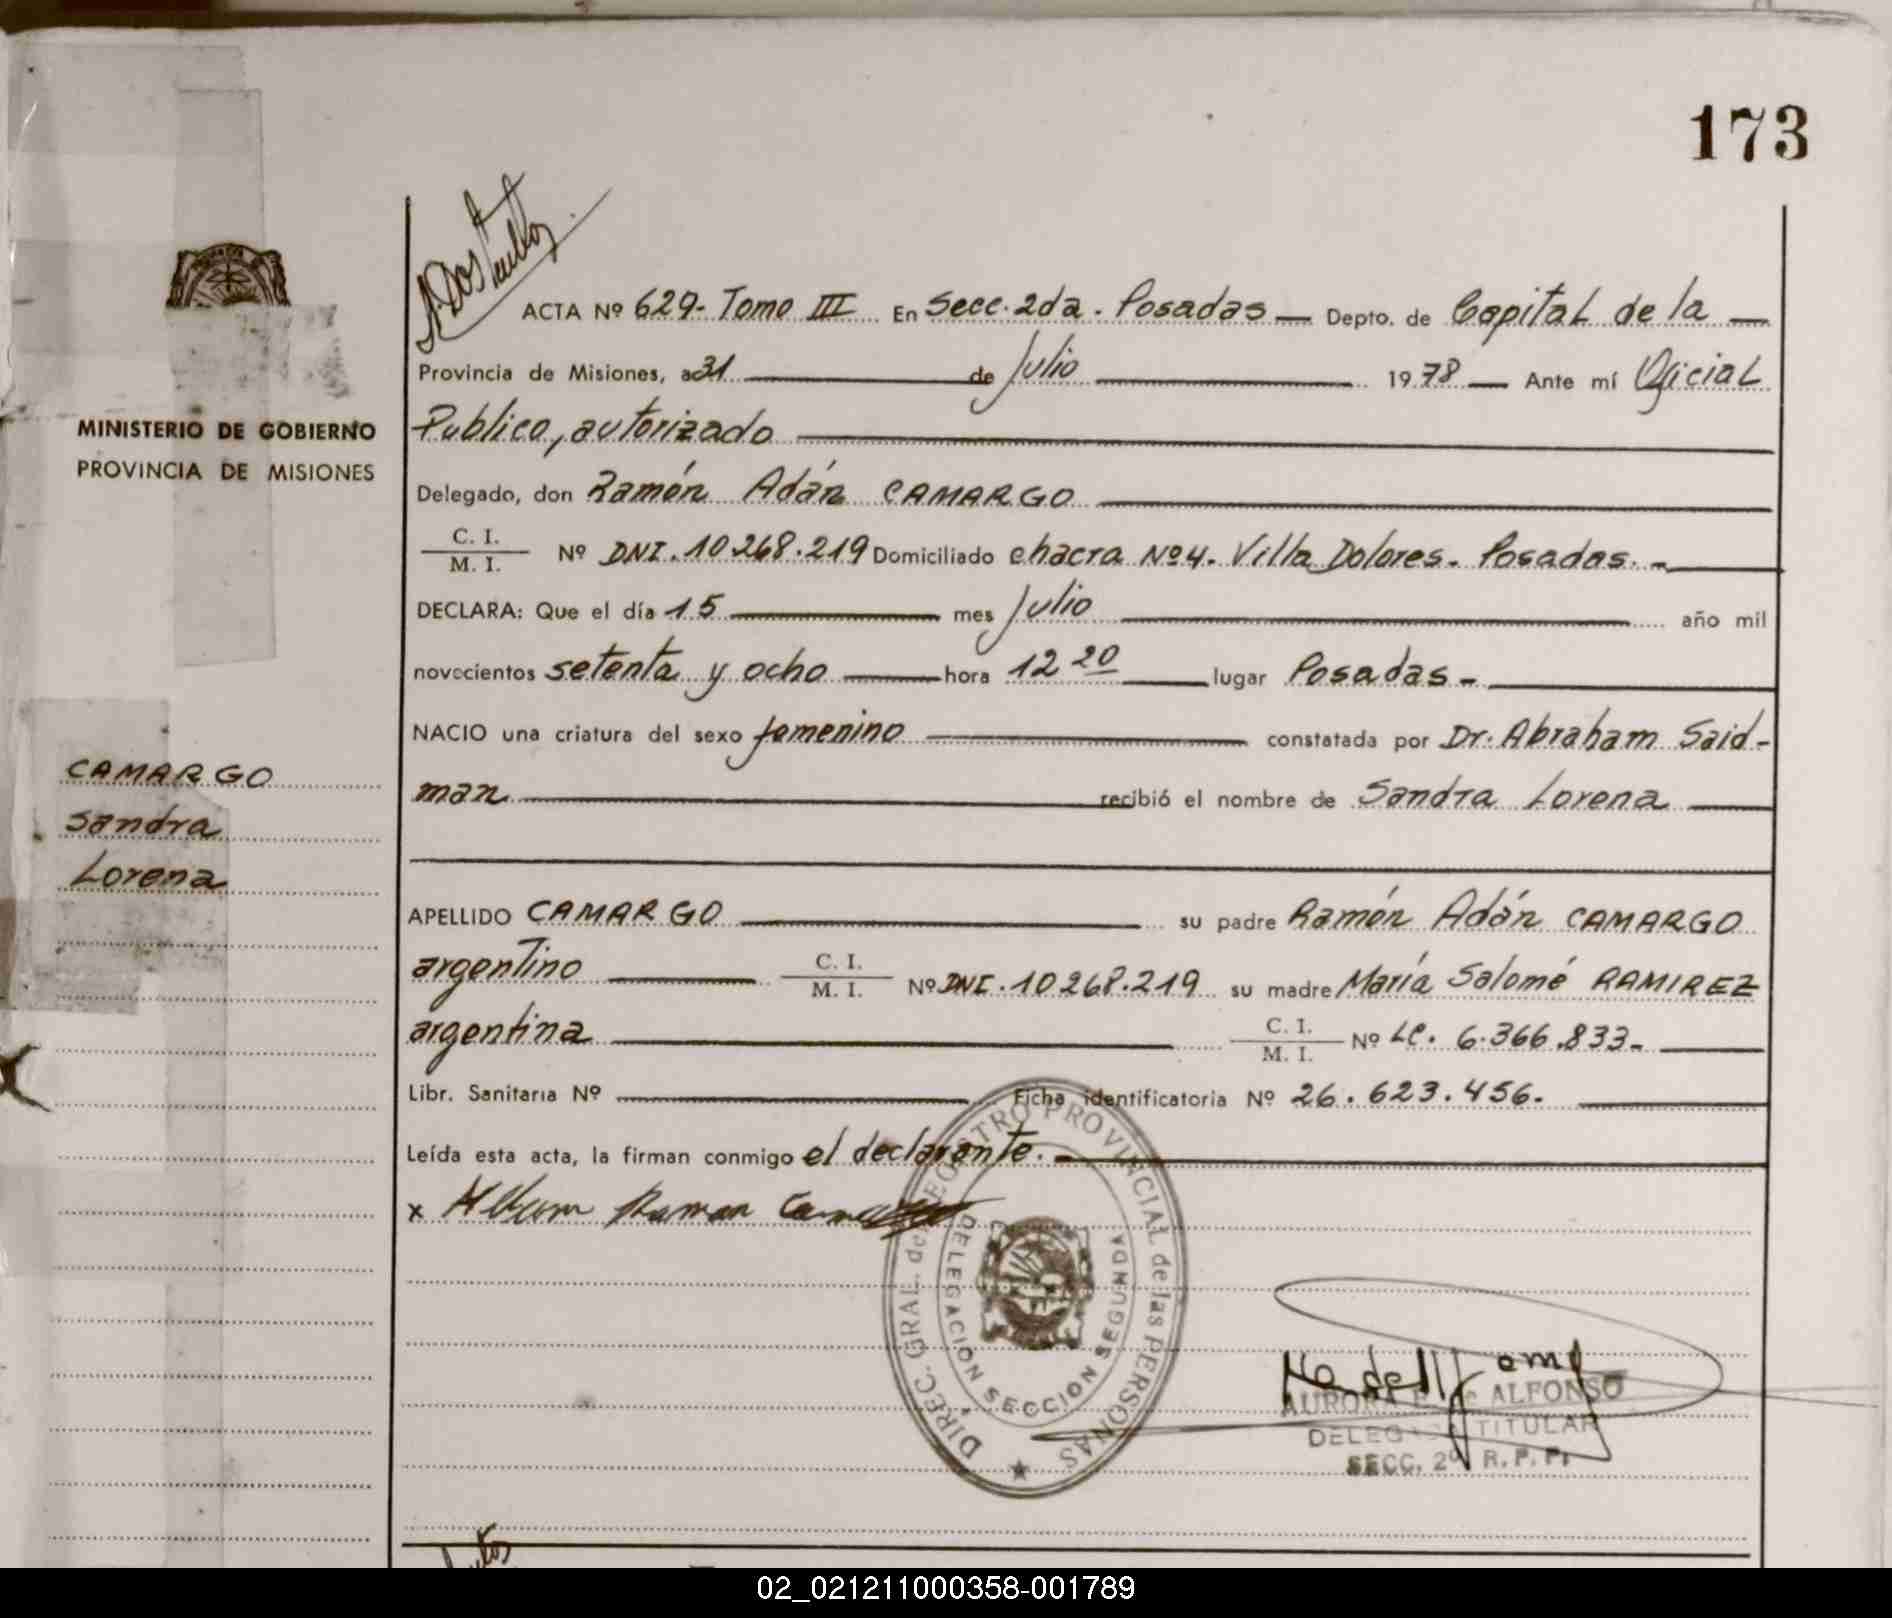 173
ACTA Nº 629 - Tomo III En Secc. 2da. Posadas — Depto. de Capital de la —
Provincia de Misiones, a 31 de Julio 1978 — Ante mí Oficial
Publico, autorizado
Delegado, don Ramón Adán CAMARGO
C. I.
M. I. Nº DNI. 10.268.219 Domiciliado chacra Nº 4. Villa Dolores. Posadas. -
DECLARA: Que el día 15 mes Julio año mil
novecientos setenta y ocho hora 12 20 lugar Posadas -
NACIO una criatura del sexo femenino constatada por Dr. Abraham Said-
man recibió el nombre de Sandra Lorena
APELLIDO CAMARGO su padre Ramón Adán CAMARGO
argentino C. I.
M. I. Nº DNI. 10.268.219 su madre María Salomé RAMIREZ
argentina C. I.
M. I. Nº LC. 6.366.833-
Libr. Sanitaria Nº Ficha identificatoria Nº 26.623.456.
Leída esta acta, la firman conmigo el declarante.
x Ramon
MINISTERIO DE GOBIERNO
PROVINCIA DE MISIONES
CAMARGO
Sandra
Lorena
DIREC. GRAL. del REGISTRO PROVINCIAL de las PERSONAS
DELEGACION SECCION SEGUNDA
AURORA ALFONSO
TITULAR
SECC. 2º R. P. P.
02_021211000358-001789